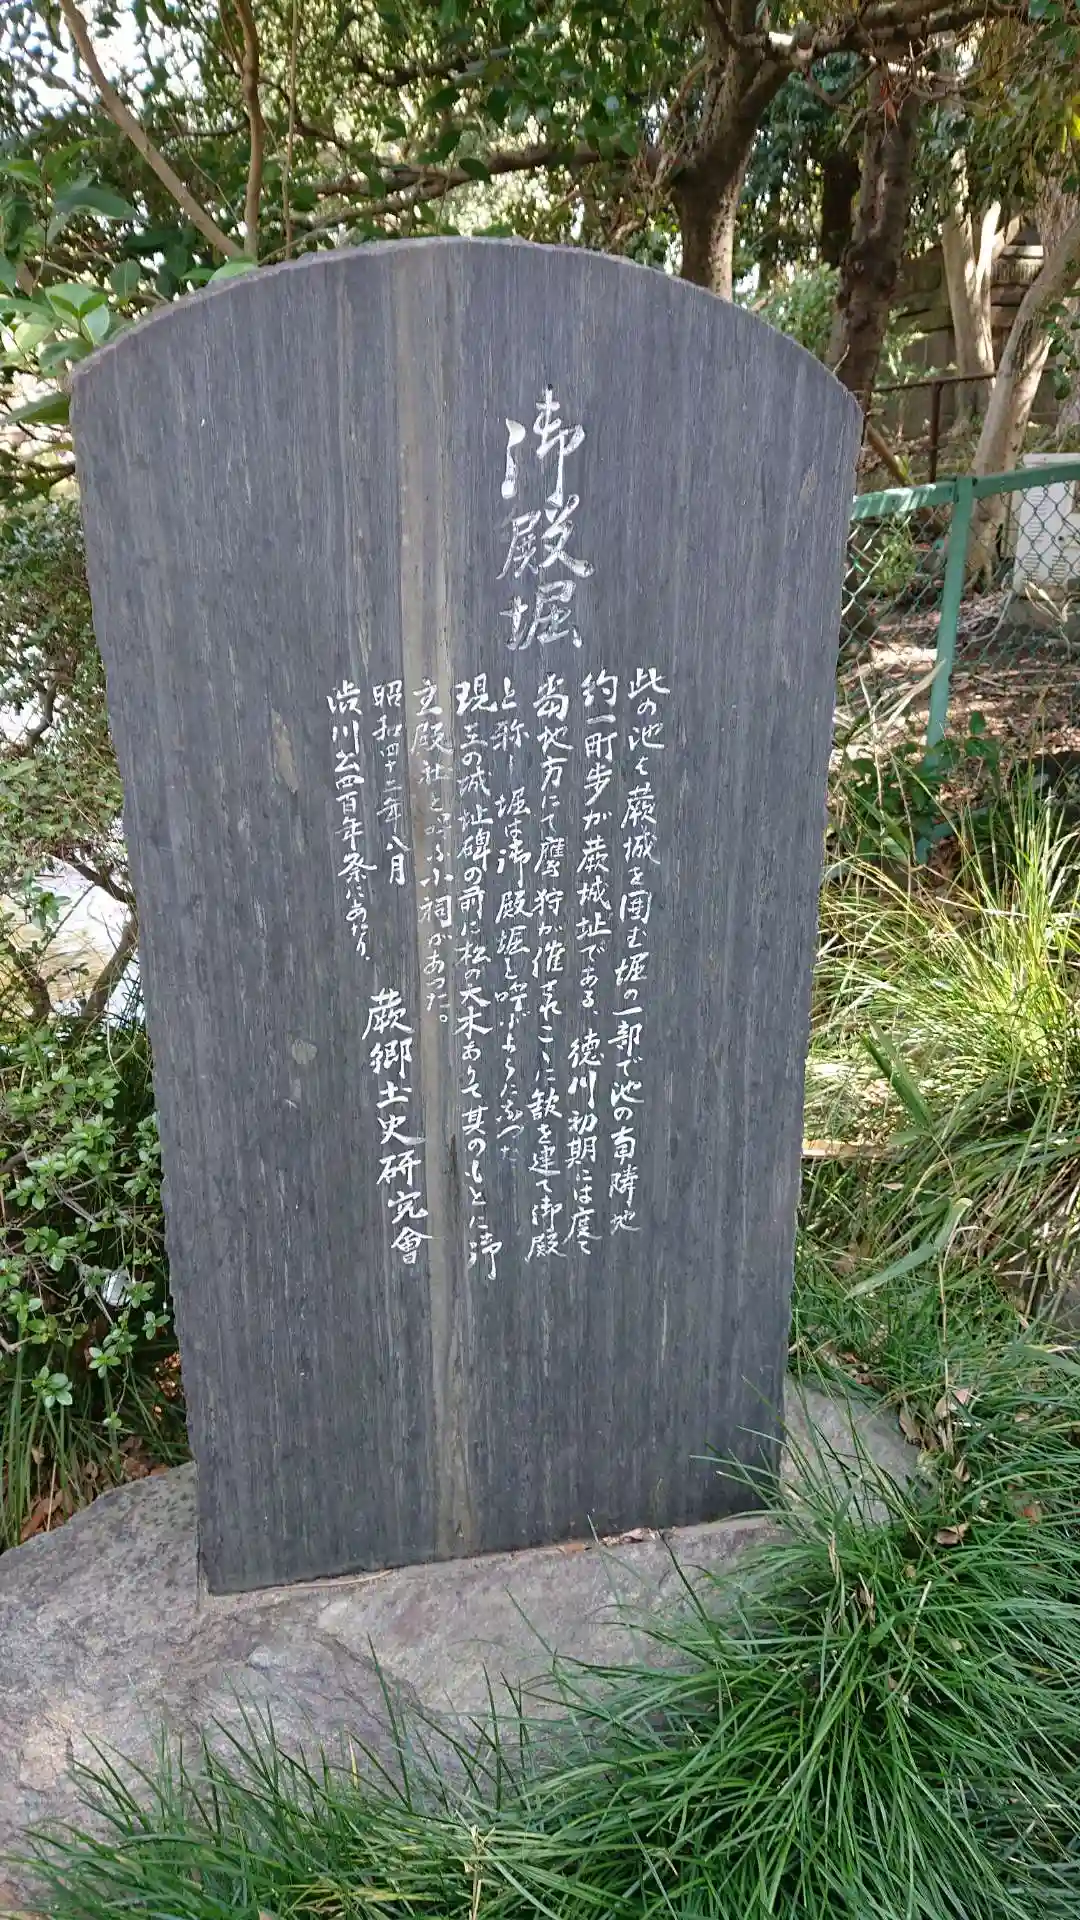 御殿堀
此の池は蕨城を囲む堀の一部で池の南隣地
約一町歩が蕨城址である、徳川初期には度々
当地方にて鷹狩が催されこゝに館を建て御殿
と称し堀は御殿堀と呼ぶようになった
現在の城址碑の前に松の大木ありて其のもとに御
主殿社と呼ぶ小祠があった。
昭和四十二年八月
渋川公四百年祭にあたり、
蕨郷土史研究會